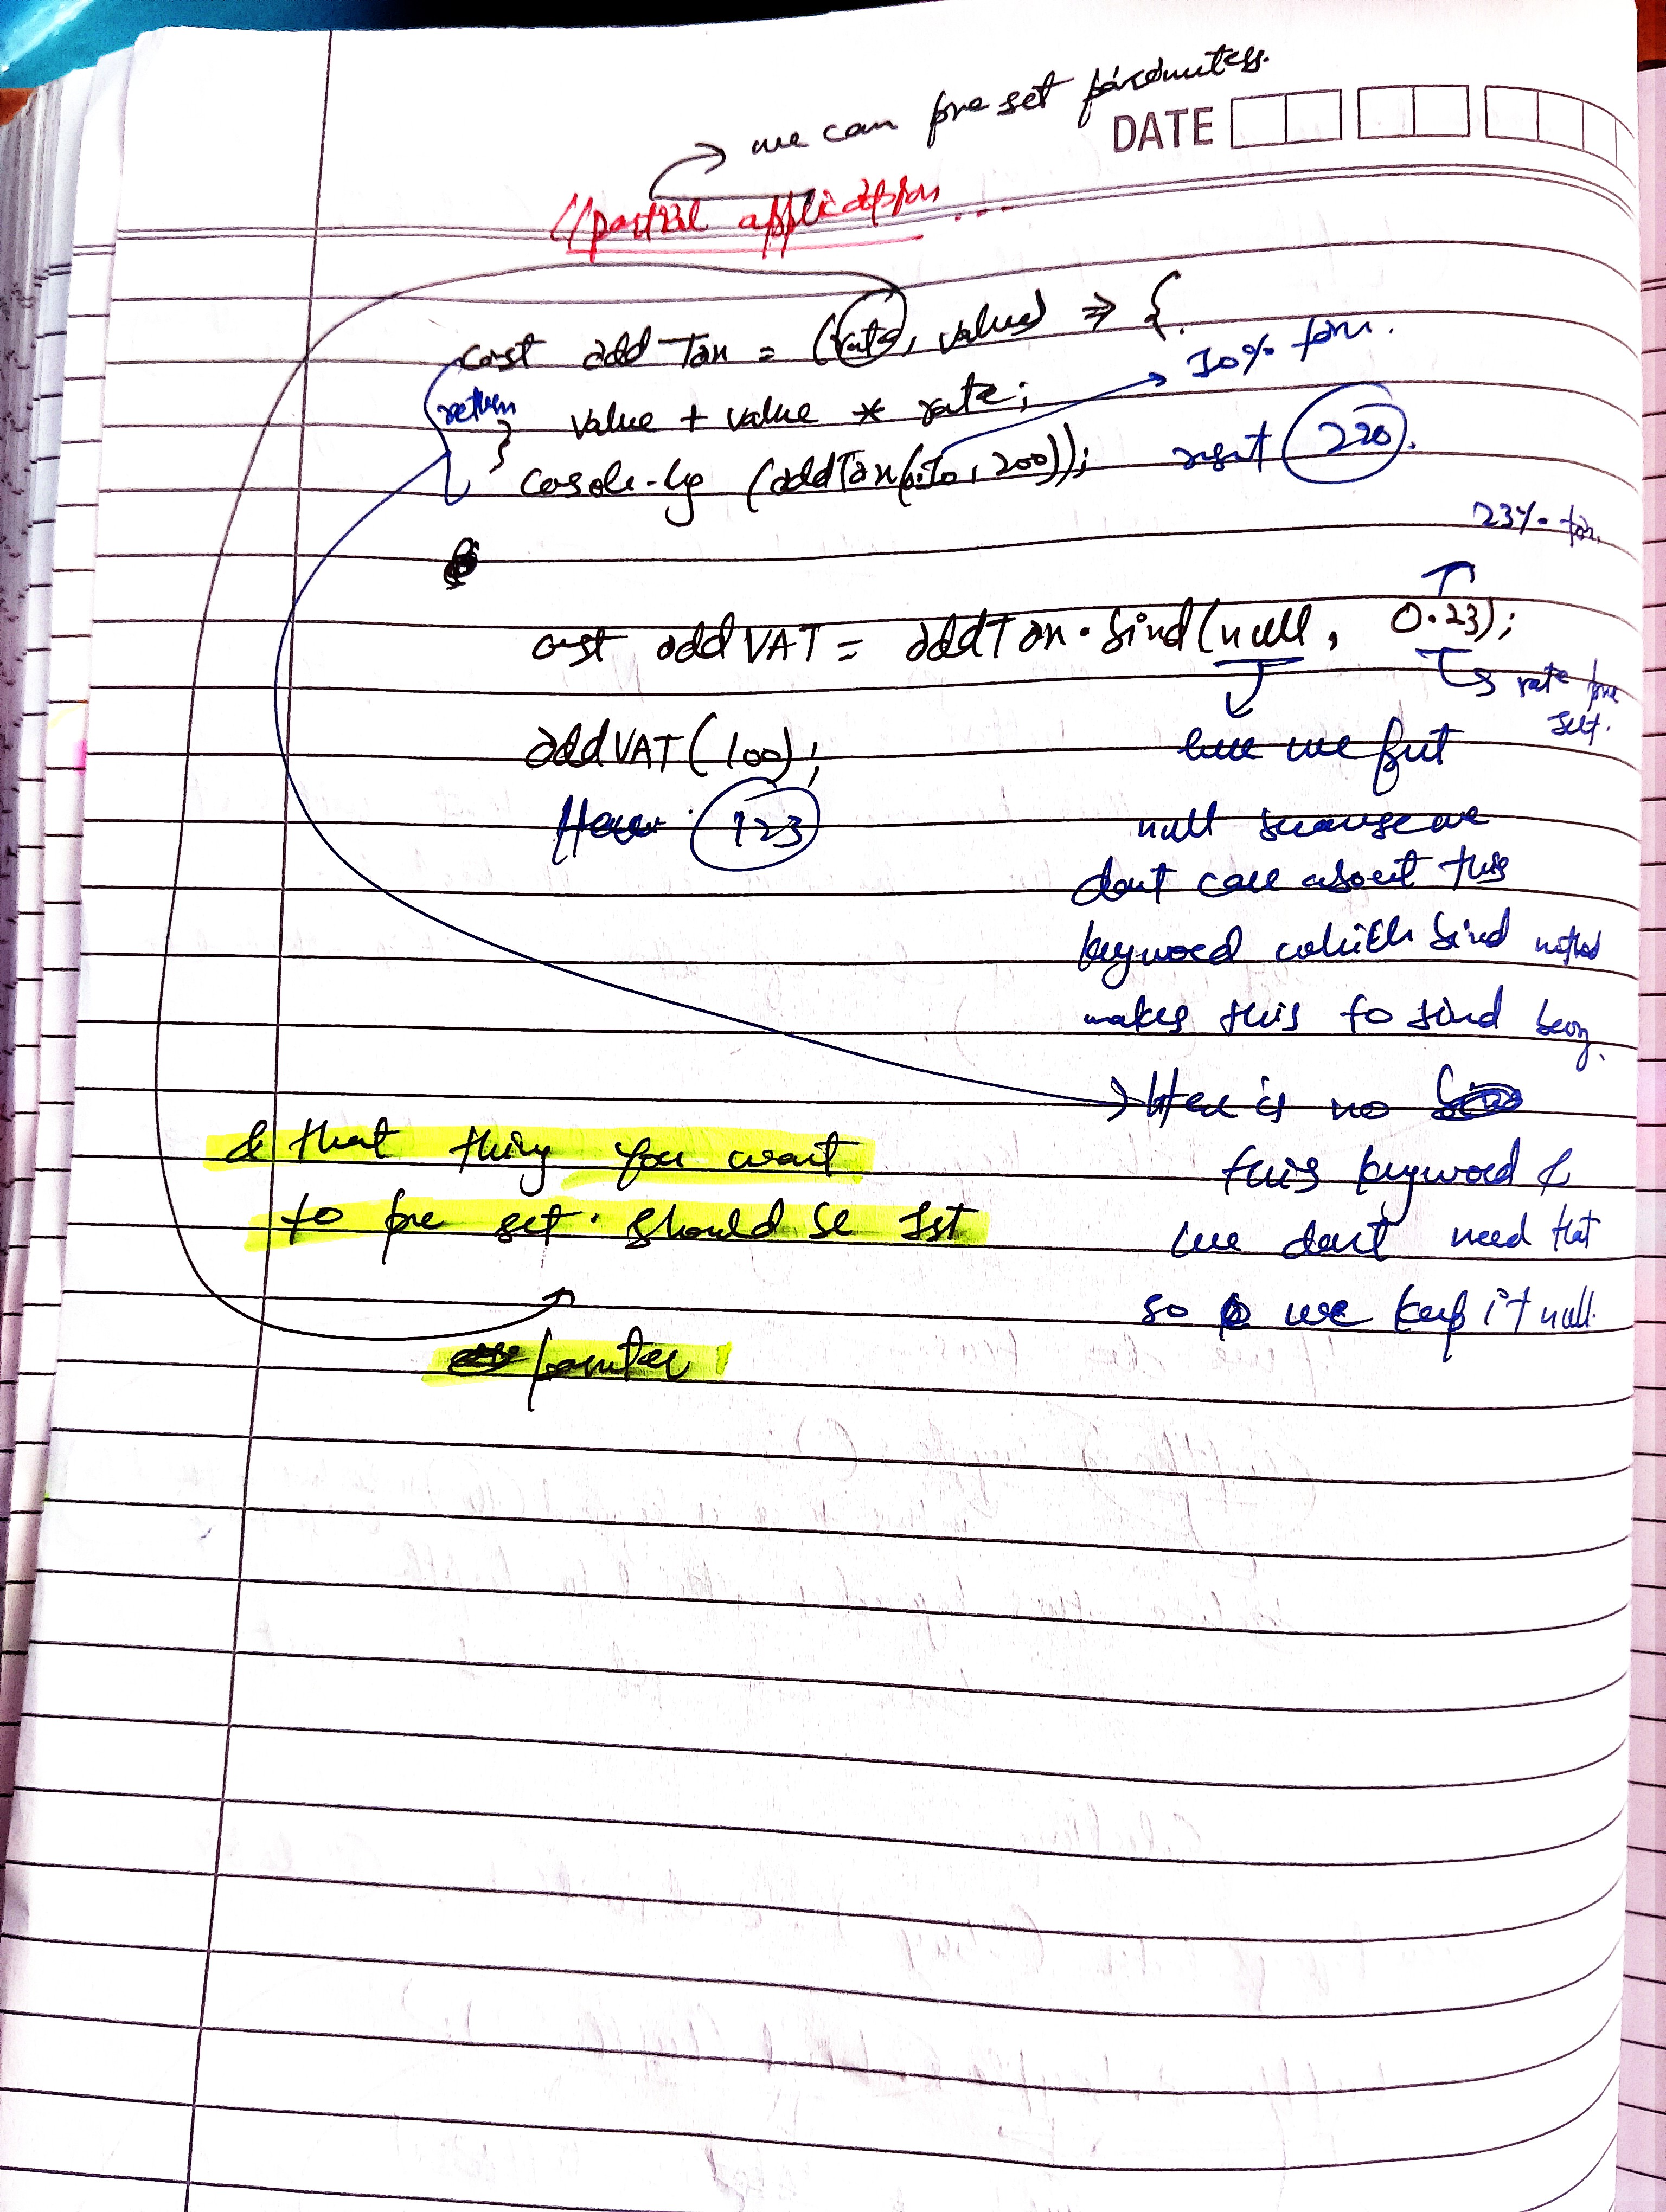 we can pre set parameters.
DATE
//partial application ...
const addTax = (rate, value) => {
10% tax.
return value + value * rate;
}
console.log (addTax(0.10, 200)); result 220.
23% tax.
const addVAT = addTax.bind(null, 0.23);
rate pre
set.
addVAT(100);
here we put
123
null because we
dont care about this
keyword which bind method
makes this to bind
Here is no
this keyword &
we dont need that
so we keep it null.
& that thing you want
to pre set. should be 1st